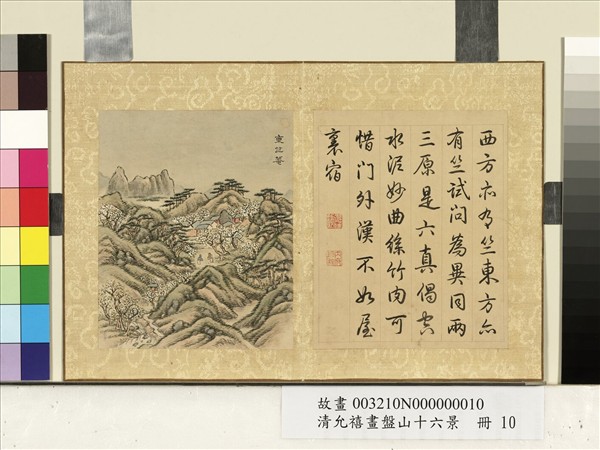 東竺菴
西方亦竺東方亦
有竺試問為異同兩
三原是六真偈
水泥妙曲絲竹肉可
惜門外漢不如屋
裏宿
故畫 003210N000000010
清允禧畫盤山十六景 冊 10